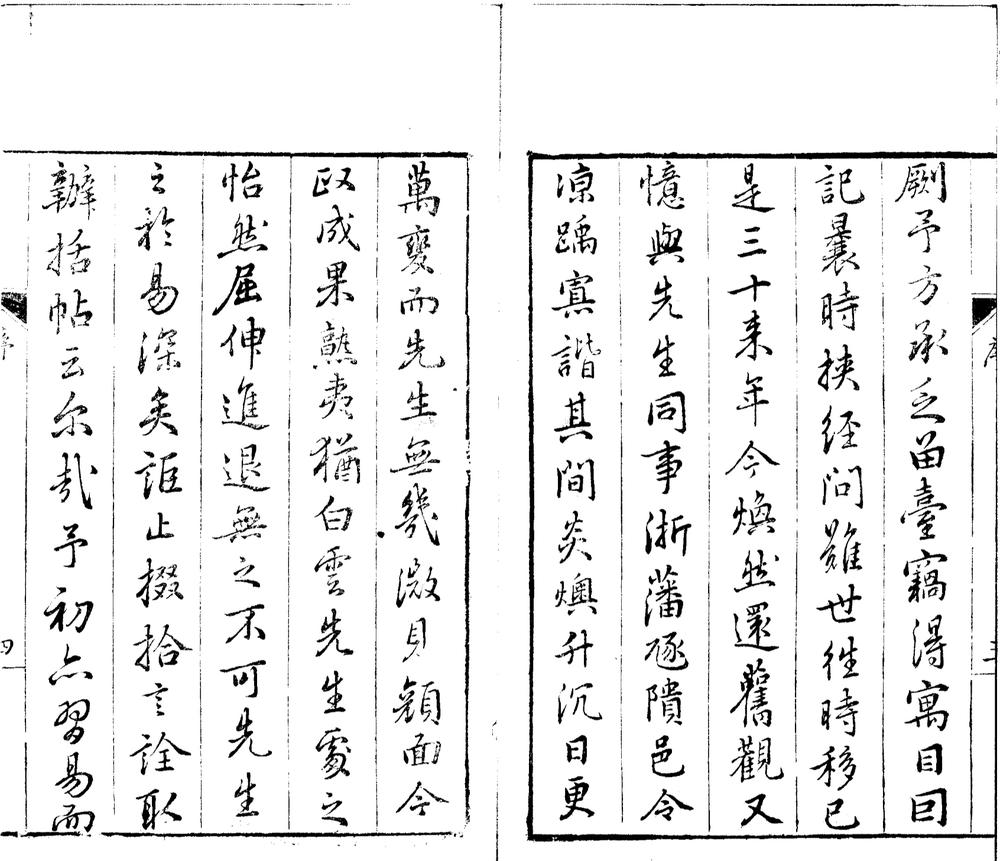 厥予方承乏留臺竊得寓目囙
記曩時挾経問難世徃時移已
是三十来年今煥然還舊觀又
憶與先生同事浙藩豗隤邑令
凉踽寡諧其間炎燠升沉日更
萬變而先生無幾微見顔面今
政成果熟夷猶白雲先生處之
怡然屈伸進退無之不可先生
之於易深矣詎止掇拾言詮取
辦括帖云尔哉予初亦習易而